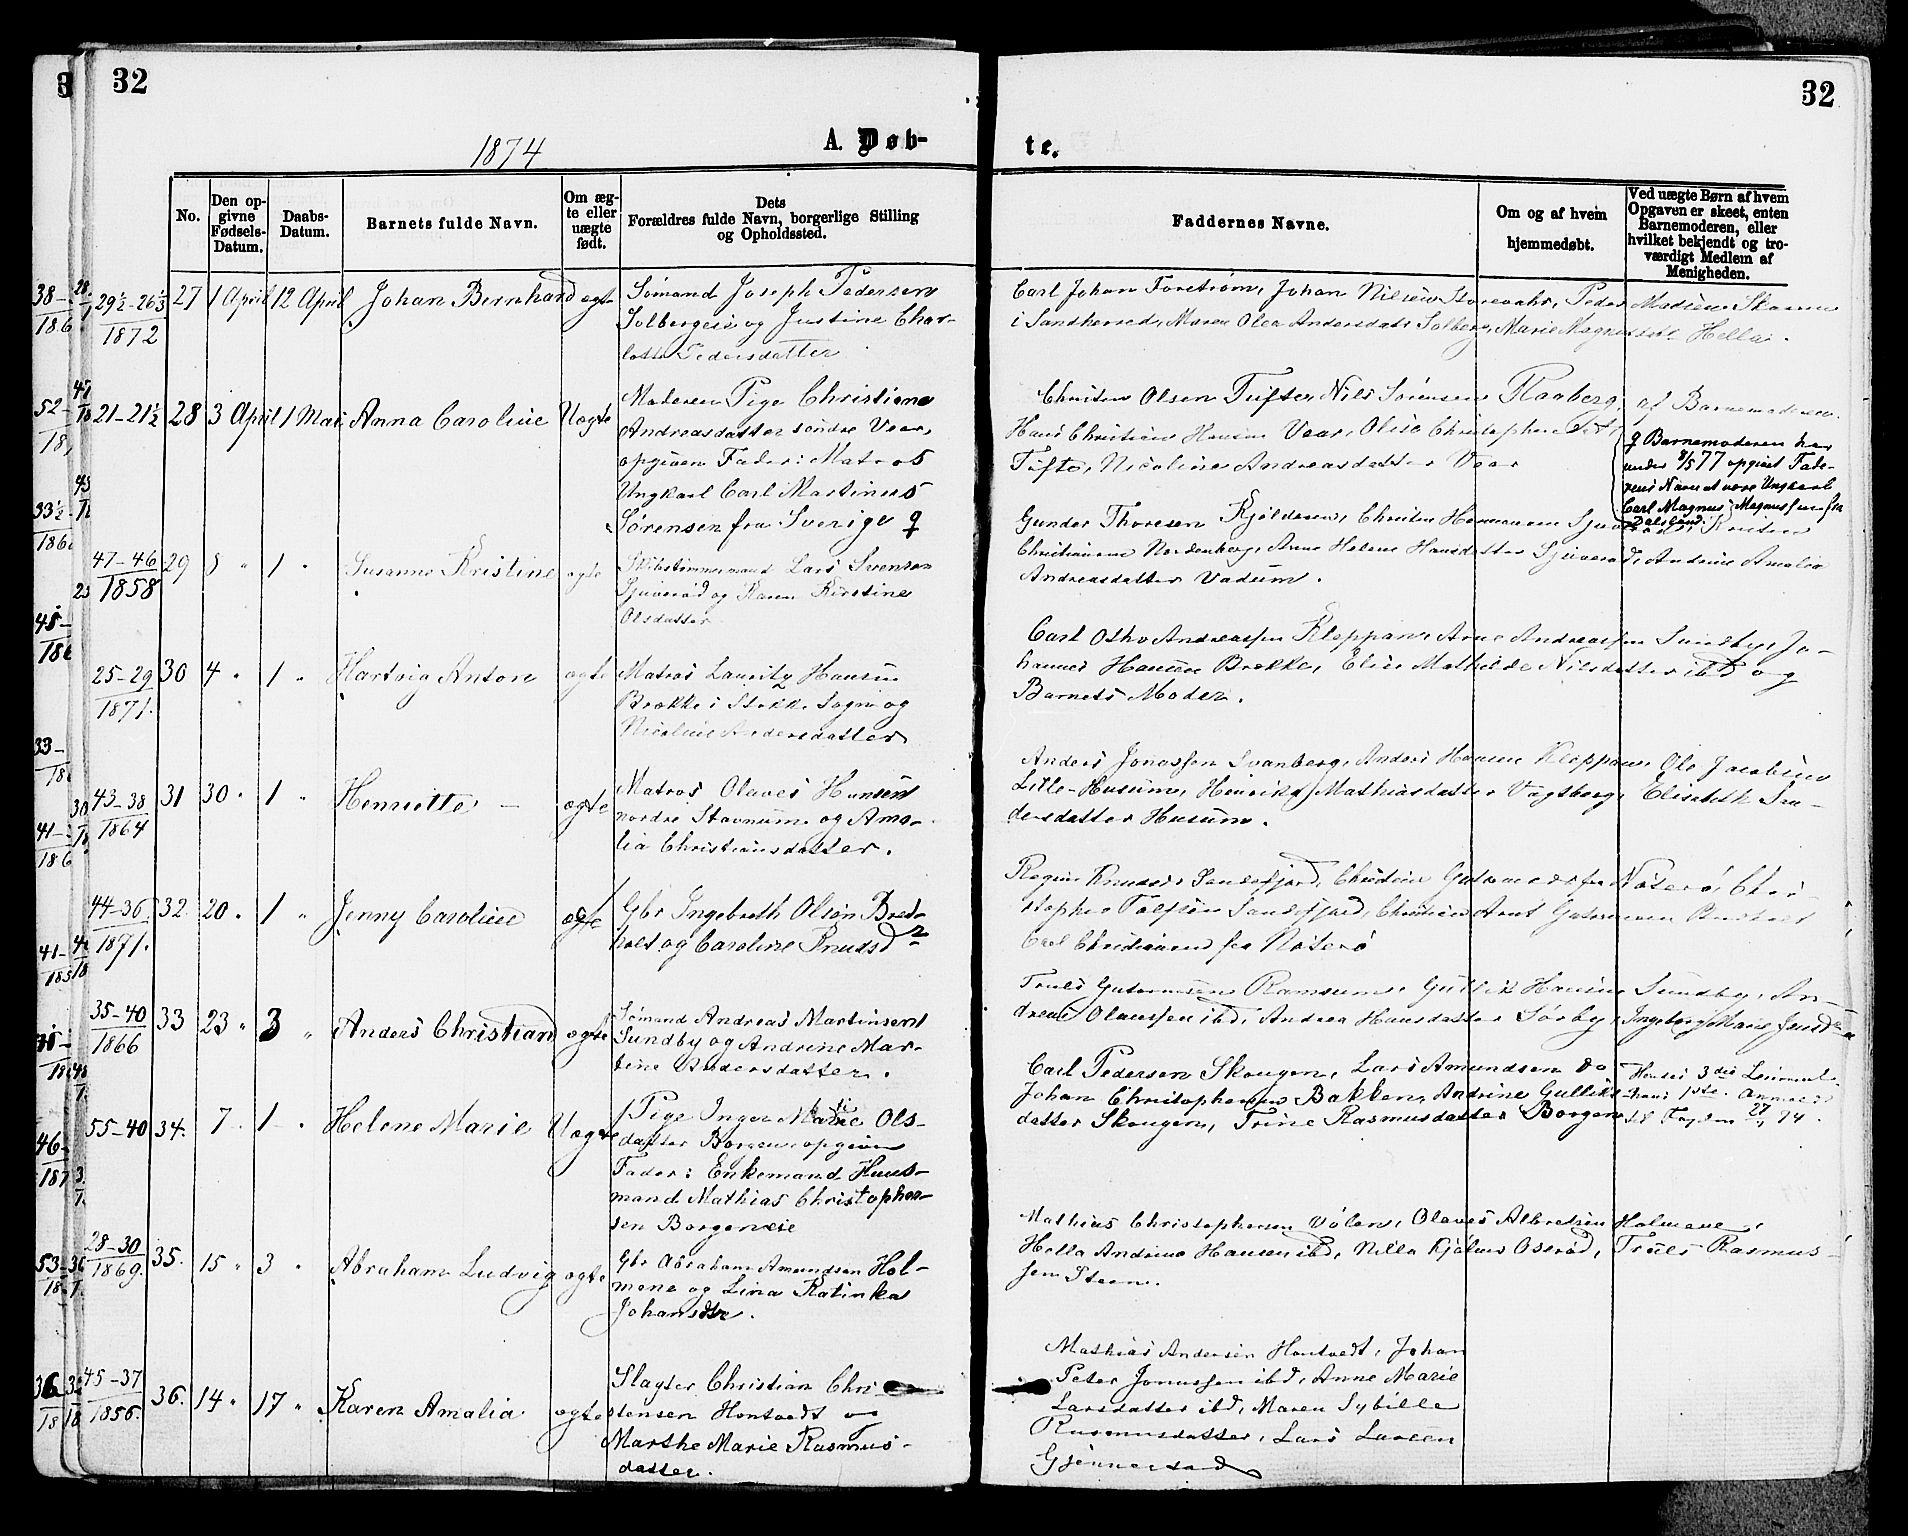 32
32
1874
A. Døb-
te.
No.
Den op-
givne
Fødsels-
Datum.
Daabs-
Datum.
Barnets fulde Navn.
Om æg-
te eller
uægte
født.
Dets
Forældres fulde Navn, borgerlige Stilling
og Opholdssted.
Faddernes Navne.
Om og af hvem
hjemmedøbt.
Ved uægte Børn af hvem
Opgaven er skeet, enten
Barnemoderen, eller
hvilket bekjendt og tro-
værdigt Medlem af
Menigheden.
29½-26⅓
1872
27 1 April 12 April Johan Bernhard ægte
Sømand Joseph Pedersen
Solbergeie og Justine Char-
lotte Pedersdatter
Carl Johan Forstrøm, Johan Nilsen Peder Madsen
i Sandherred, Maren Olea Andersdatr Solberg, Marie Hella.
21-21½ 28 3 April 1 Mai Anna Caroline Uægte
Moderen Pige Christiane
Andreasdatter søndre Vear,
opgiven Fader: Matros
Ungkarl Carl Martinus
Sørensen fra Sverige
Christen Olsen Tufte, Nils Sørensen Raaberg,
Hans Christian Hansen Vear, Olise Christophersdatr
Tufte, Nicoline Andreasdatter Vear
af Barnemoderen.
Barnemoderen har
under 8/5 77 opgivet Fade-
rens Navn at være Ungkarl
Carl Magnus Magnussen fra
Dalsland.
47-46
1858
29 5 " 1 " Susanne Kristine ægte
Skibstømmermand Lars Svensen
og Karen Kirstine
Olsdatter
Gunder Thoresen Christen Hermansen
Christiansen Nordenberg, Anne Helene Hansdatter Andrine Amalia
Andreasdatter Vadum.
25-29
1871.
30 4 " 1 " Hartvig Anton ægte
Matros Lauritz Hansen
Brække i Stokke Sogn og
Nicoline Andersdatter
Carl Otho Andreassen Kloppan, Arne Andreassen Sundby, Jo-
hannes Hansen Brække, Elise Mathilde Nilsdatter ibd og
Barnets Moder.
43-38
1864
31 30 " 1 " Henriette - ægte
Matros Olaves Hansen
nordre Stavnum og Ama-
lia Christiansdatter.
Anders Jonassen Svanberg, Anders Hansen Kloppan, Ole Jacobsen
Lille-Husum, Henrikke Mathiasdatter Vegtsberg, Elisabeth
dersdatter Husum.
44-36
1871.
32. 20 " 1 " Jenny Caroline ægte
Gbr Ingebreth Olsen Bred-
holt og Caroline Knudsdr
Knudsen Sandefjord, Christian Nøterø, Chri-
stopher Tolfsen Sandefjord, Christian
Carl Christiansen fra Nøterø
35-40
1866
33 23 " 3 " Anders Christian ægte
Sømand Andreas Martinsen
Sundby og Andrine Mar-
tine Andersdatter.
Truls Guttormsen Ramsum, Gullik Hansen Sundby, An-
dreas Olaussen ibd, Andrea Hansdatter Sørby, Ingeborg Marie
55-40 34. 7 " 1 " Helene Marie Uægte
Pige Inger Marie Ols-
datter Borgen opgiven
Fader: Enkemand Huus-
mand Mathias Christopher-
sen Borgeneie
Carl Pedersen Skougen, Lars Amundsen do
Johan Christophersen Bakken, Andrine Gulliks-
datter Skougen, Trine Rasmusdatter Borgen
Hendes 3die Leiermaal
hans 1ste. Anmeldt
til Fogden 74.
28-30
1869.
35. 15 " 3 " Abraham Ludvig ægte
Gbr Abraham Amundsen Hol-
mene og Lina Katinka
Johansdtr.
Mathias Christophersen Vølen, Olaves Albretsen Holmene,
Hella Andrine Hansen ibd, Nilla Oserød, Truls Rasmus-
sen Steen.
45-37
1856.
36. 14 " 17 " Karen Amalia ægte
Slagter Christian Chri-
stensen Hontvedt og
Marthe Marie Rasmus-
datter.
Mathias Andersen Hontvedt, Johan
Peter Jonassen ibd, Anne Marie
Larsdatter ibd, Maren Sybille
Rasmusdatter, Lars Larsen
Gjennestad